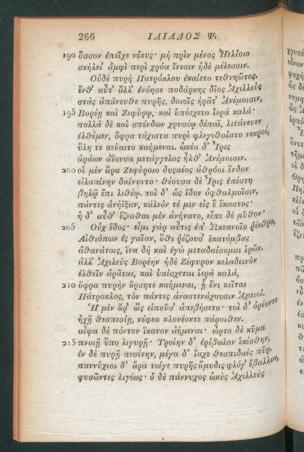 266 ΙΛΙΑΔΟΣ Ψ.
190 ὅσσον ἐπεῖχε νέκυς· μὴ πρὶν μένος Ἠελίοιο
σκήλει᾽ ἀμφὶ περὶ χρόα ἴνεσιν ἠδὲ μέλεσσιν.
Οὐδὲ πυρὴ Πατρόκλου ἐκαίετο τεθνηῶτος.
ἔνθ᾽ αὖτ᾽ ἄλλ᾽ ἐνόησε ποδάρκης δῖος Ἀχιλλεύς
στὰς ἀπάνευθε πυρῆς, δοιοῖς ἠρᾶτ᾽ Ἀνέμοισιν,
195 Βορέῃ καὶ Ζεφύρῳ, καὶ ὑπίσχετο ἱερὰ καλά·
πολλὰ δὲ καὶ σπένδων χρυσέῳ δέπαϊ, λιτάνευεν
ἐλθέμεν, ὄφρα τάχιστα πυρὶ φλεγεθοίατο νεκροί,
ὕλη τε σεύαιτο καήμεναι. ὠκέα δ᾽ Ἶρις
ἀράων ἀΐουσα μετάγγελος ἦλθ᾽ Ἀνέμοισιν.
200 οἱ μὲν ἄρα Ζεφύροιο δυσαέος ἀθρόοι ἔνδον
εἰλαπίνην δαίνυντο· θέουσα δὲ Ἶρις ἐπέστη
βηλῷ ἔπι λιθέῳ. τοὶ δ᾽ ὡς ἴδον ὀφθαλμοῖσιν,
πάντες ἀνήϊξαν, κάλεόν τέ μιν εἰς ἓ ἕκαστος·
ἡ δ᾽ αὖθ᾽ ἕζεσθαι μὲν ἀνήνατο, εἶπε δὲ μῦθον·
205 Οὐχ ἕδος· εἶμι γὰρ αὖτις ἐπ᾽ Ὠκεανοῖο ῥέεθρα,
Αἰθιόπων ἐς γαῖαν, ὅθι ῥέζουσ᾽ ἑκατόμβας
ἀθανάτοις, ἵνα δὴ καὶ ἐγὼ μεταδαίσομαι ἱρῶν.
ἀλλ᾽ Ἀχιλεὺς Βορέην ἠδὲ Ζέφυρον κελαδεινὸν
ἐλθεῖν ἀρᾶται, καὶ ὑπίσχεται ἱερὰ καλά,
210 ὄφρα πυρὴν ὄρσητε καήμεναι, ᾗ ἔνι κεῖται
Πάτροκλος, τὸν πάντες ἀναστενάχουσιν Ἀχαιοί.
Ἡ μὲν ἄρ᾽ ὣς εἰποῦσ᾽ ἀπεβήσετο· τοὶ δ᾽ ὀρέοντο
ἠχῇ θεσπεσίῃ, νέφεα κλονέοντε πάροιθεν.
αἶψα δὲ πόντον ἵκανον ἀήμεναι· ὦρτο δὲ κῦμα
215 πνοιῇ ὕπο λιγυρῇ· Τροίην δ᾽ ἐρίβωλον ἱκέσθην,
ἐν δὲ πυρῇ πεσέτην, μέγα δ᾽ ἴαχε θεσπιδαὲς πῦρ.
παννύχιοι δ᾽ ἄρα τοίγε πυρῆς ἄμυδις φλόγ᾽ ἔβαλλον,
φυσῶντες λιγέως· ὁ δὲ πάννυχος ὠκὺς Ἀχιλλεὺς